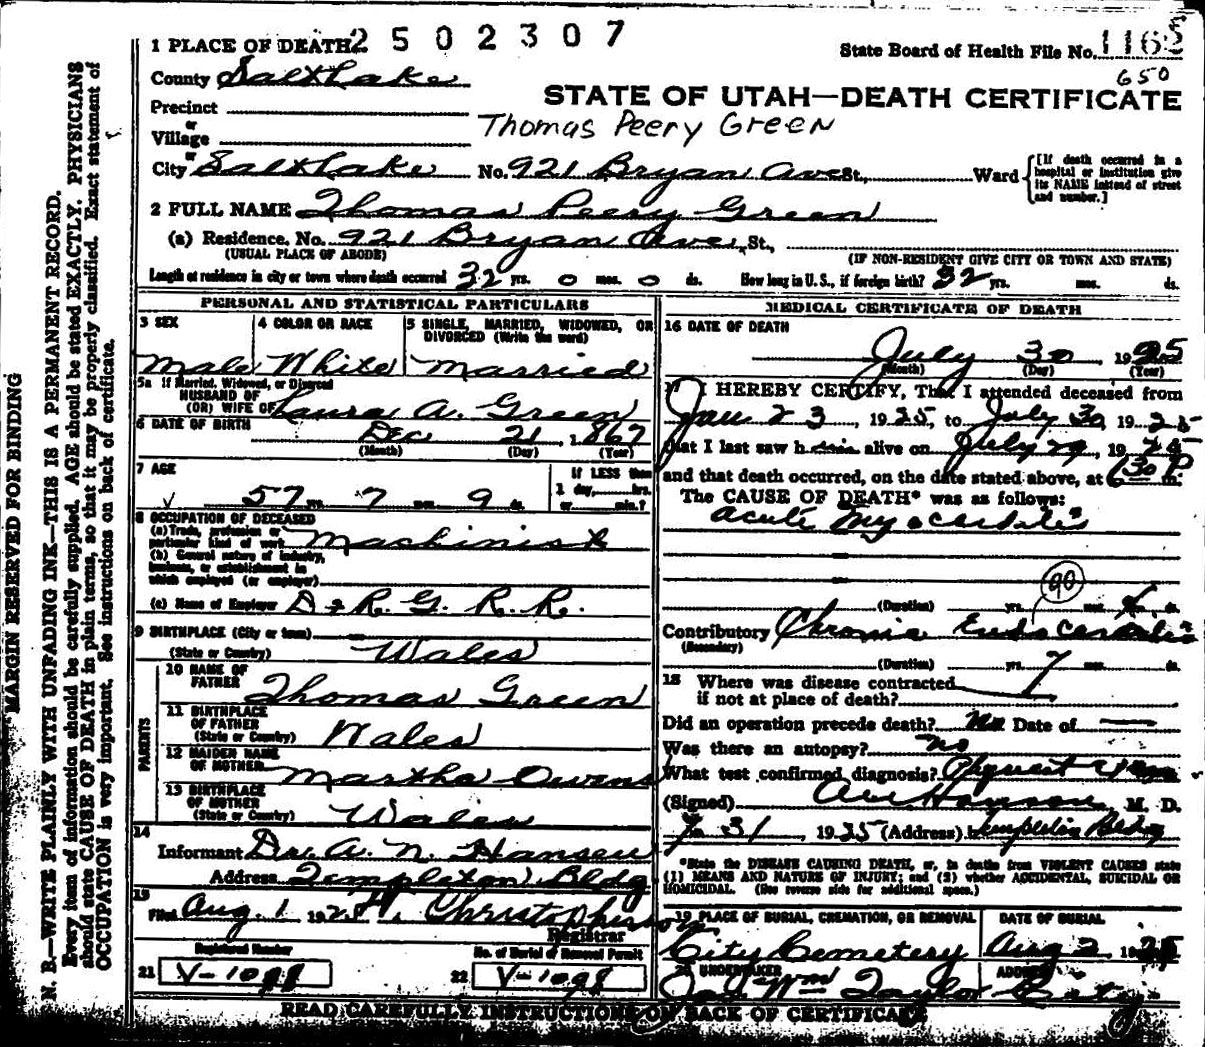 2502307
1 PLACE OF DEATH
State Board of Health File No. 1162
650
County Salt Lake
STATE OF UTAH—DEATH CERTIFICATE
Precinct
or
Village
Thomas Peery Green
or
City Salt Lake No. 921 Bryan Ave St., Ward
[If death occurred in a hospital or institution give its NAME instead of street and number.]
2 FULL NAME Thomas Peery Green
(a) Residence. No. 921 Bryan Ave., St.,
(USUAL PLACE OF ABODE) (IF NON-RESIDENT GIVE CITY OR TOWN AND STATE)
Length of residence in city or town where death occurred 32 yrs. 0 mos. 0 ds. How long in U.S., if foreign birth? 32 yrs. mos. ds.
PERSONAL AND STATISTICAL PARTICULARS
3 SEX 4 COLOR OR RACE 5 SINGLE, MARRIED, WIDOWED, OR DIVORCED (Write the word)
Male White Married
5a If Married, Widowed, or Divorced
HUSBAND OF
(OR) WIFE OF Laura A. Green
6 DATE OF BIRTH Dec 21, 1867
(Month) (Day) (Year)
7 AGE
If LESS than
1 day, hrs.
or min.?
57 yrs. 7 mos. 9 ds.
8 OCCUPATION OF DECEASED
(a) Trade, profession or
particular kind of work Machinist
(b) General nature of industry,
business, or establishment in
which employed (or employer)
(c) Name of Employer D & R. G. R. R.
9 BIRTHPLACE (City or town)
(State or Country) Wales
PARENTS
10 NAME OF
FATHER Thomas Green
11 BIRTHPLACE
OF FATHER
(State or Country) Wales
12 MAIDEN NAME
OF MOTHER Martha Owens
13 BIRTHPLACE
OF MOTHER
(State or Country) Wales
14
Informant Dr. A. N. Hansen
Address Templeton Bldg
15
Filed Aug. 1 192
Registrar
Registered Number No. of Burial or Removal Permit
21 V-1098 22 V-1098
MEDICAL CERTIFICATE OF DEATH
16 DATE OF DEATH
July 30 1925
(Month) (Day) (Year)
17 I HEREBY CERTIFY, That I attended deceased from
Jan 23, 1925, to July 30, 1925
that I last saw him alive on July 29, 1925
and that death occurred, on the date stated above, at 630 P m.
The CAUSE OF DEATH* was as follows:
Acute Myocarditis
90
(Duration) yrs. mos. ds.
Contributory Chronic Endocarditis
(Secondary)
(Duration) yrs. 7 mos. ds.
18 Where was disease contracted
if not at place of death?
Did an operation precede death? No Date of
Was there an autopsy? no
What test confirmed diagnosis?
(Signed) M. D.
7-31, 1925 (Address) Templeton Bldg
*State the DISEASE CAUSING DEATH, or, in deaths from VIOLENT CAUSES state
(1) MEANS AND NATURE OF INJURY; and (2) whether ACCIDENTAL, SUICIDAL OR
HOMICIDAL. (See reverse side for additional space.)
19 PLACE OF BURIAL, CREMATION, OR REMOVAL DATE OF BURIAL
City Cemetery Aug 2, 1925
20 UNDERTAKER ADDRESS
Jos Wm Taylor City
READ CAREFULLY INSTRUCTIONS ON BACK OF CERTIFICATE
MARGIN RESERVED FOR BINDING
N. B.—WRITE PLAINLY WITH UNFADING INK—THIS IS A PERMANENT RECORD.
Every item of information should be carefully supplied. AGE should be stated EXACTLY. PHYSICIANS
should state CAUSE OF DEATH in plain terms, so that it may be properly classified. Exact statement of
OCCUPATION is very important. See instructions on back of certificate.